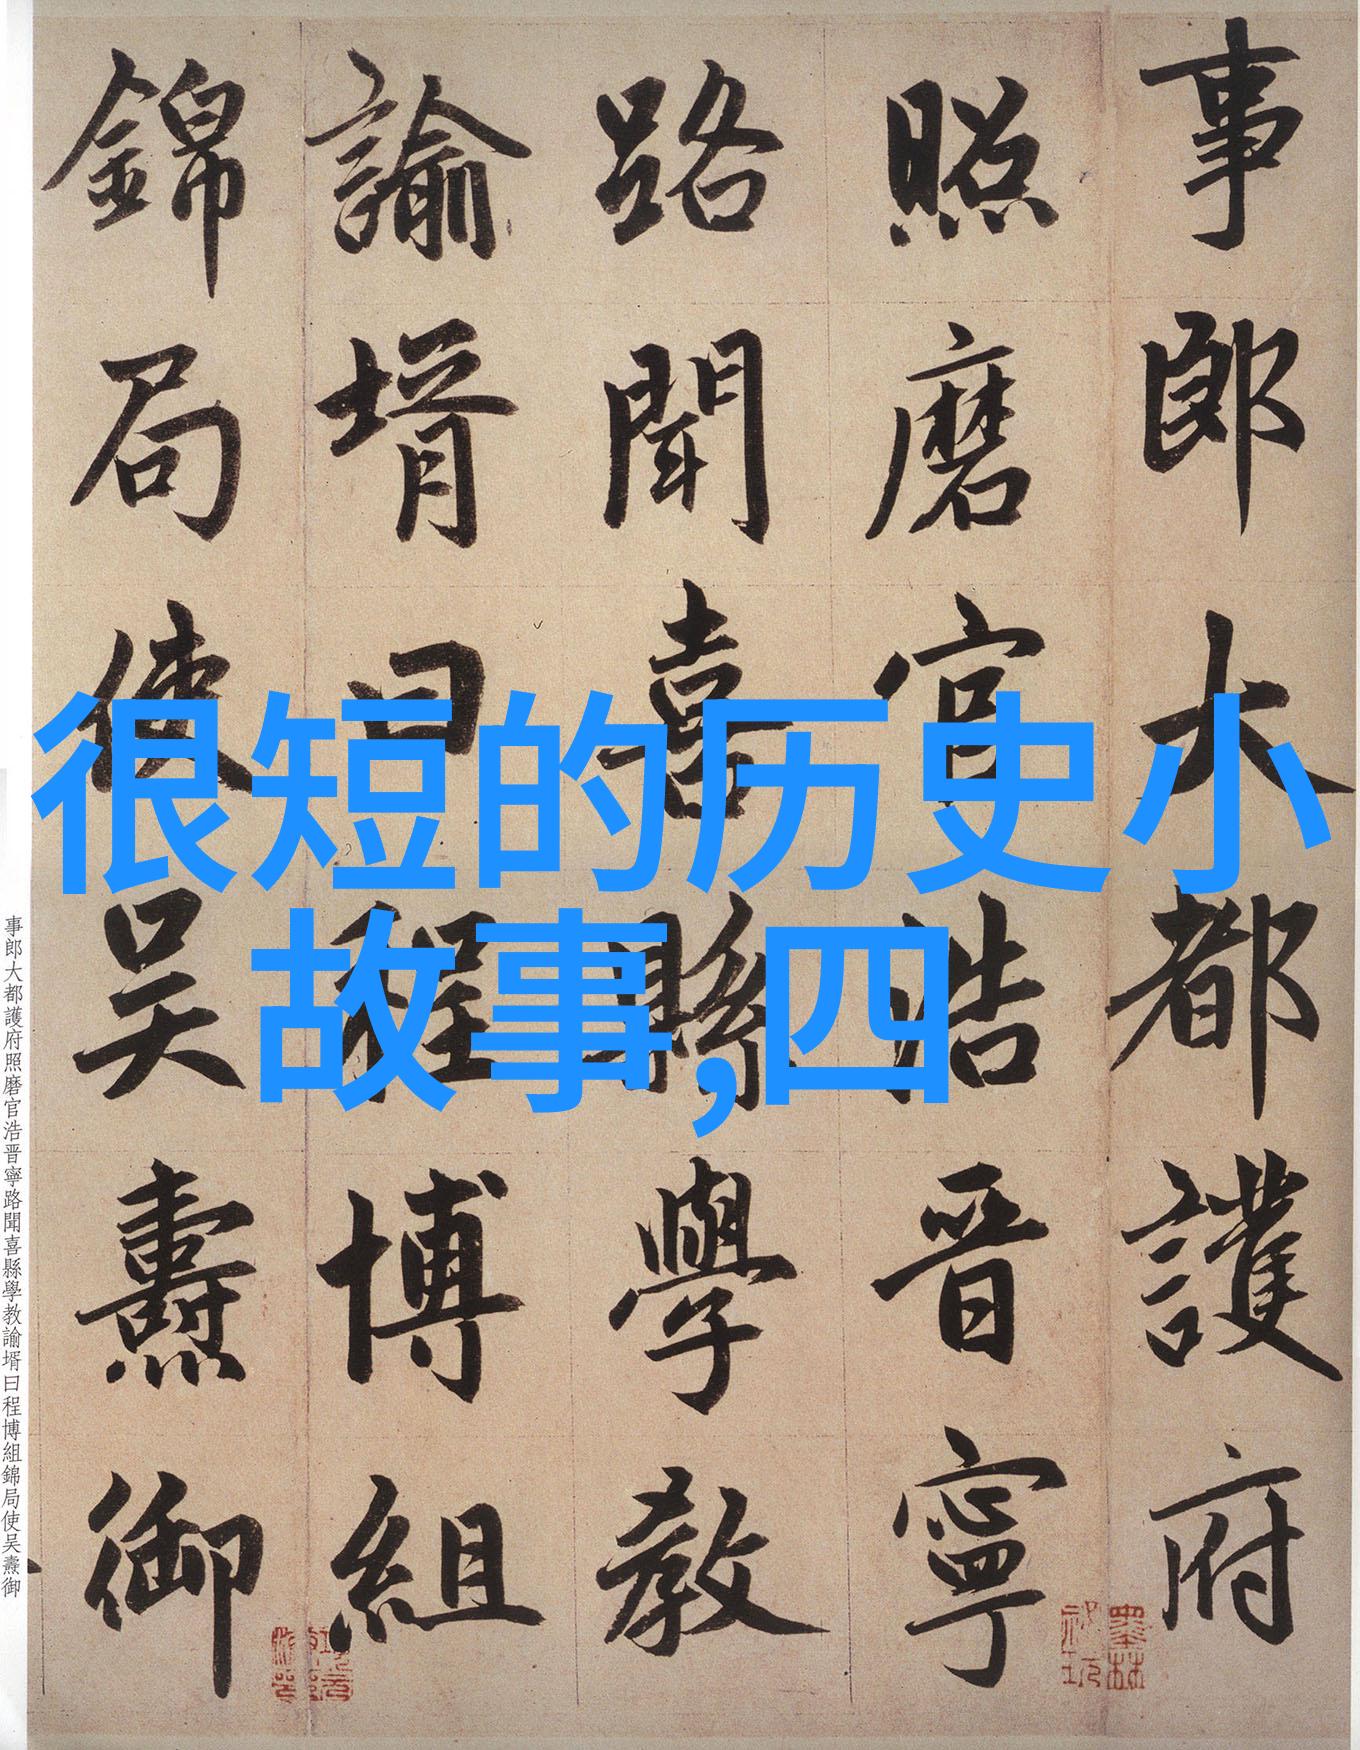 很短的历史小
故事,四
事郎大都護府
照磨官浩晋寧
路聞喜縣學教
諭壻曰程博組
錦局使吴燾御
事郎大都護府照磨官浩晋寧路聞喜縣學教諭壻曰程博組錦局使吴燾御